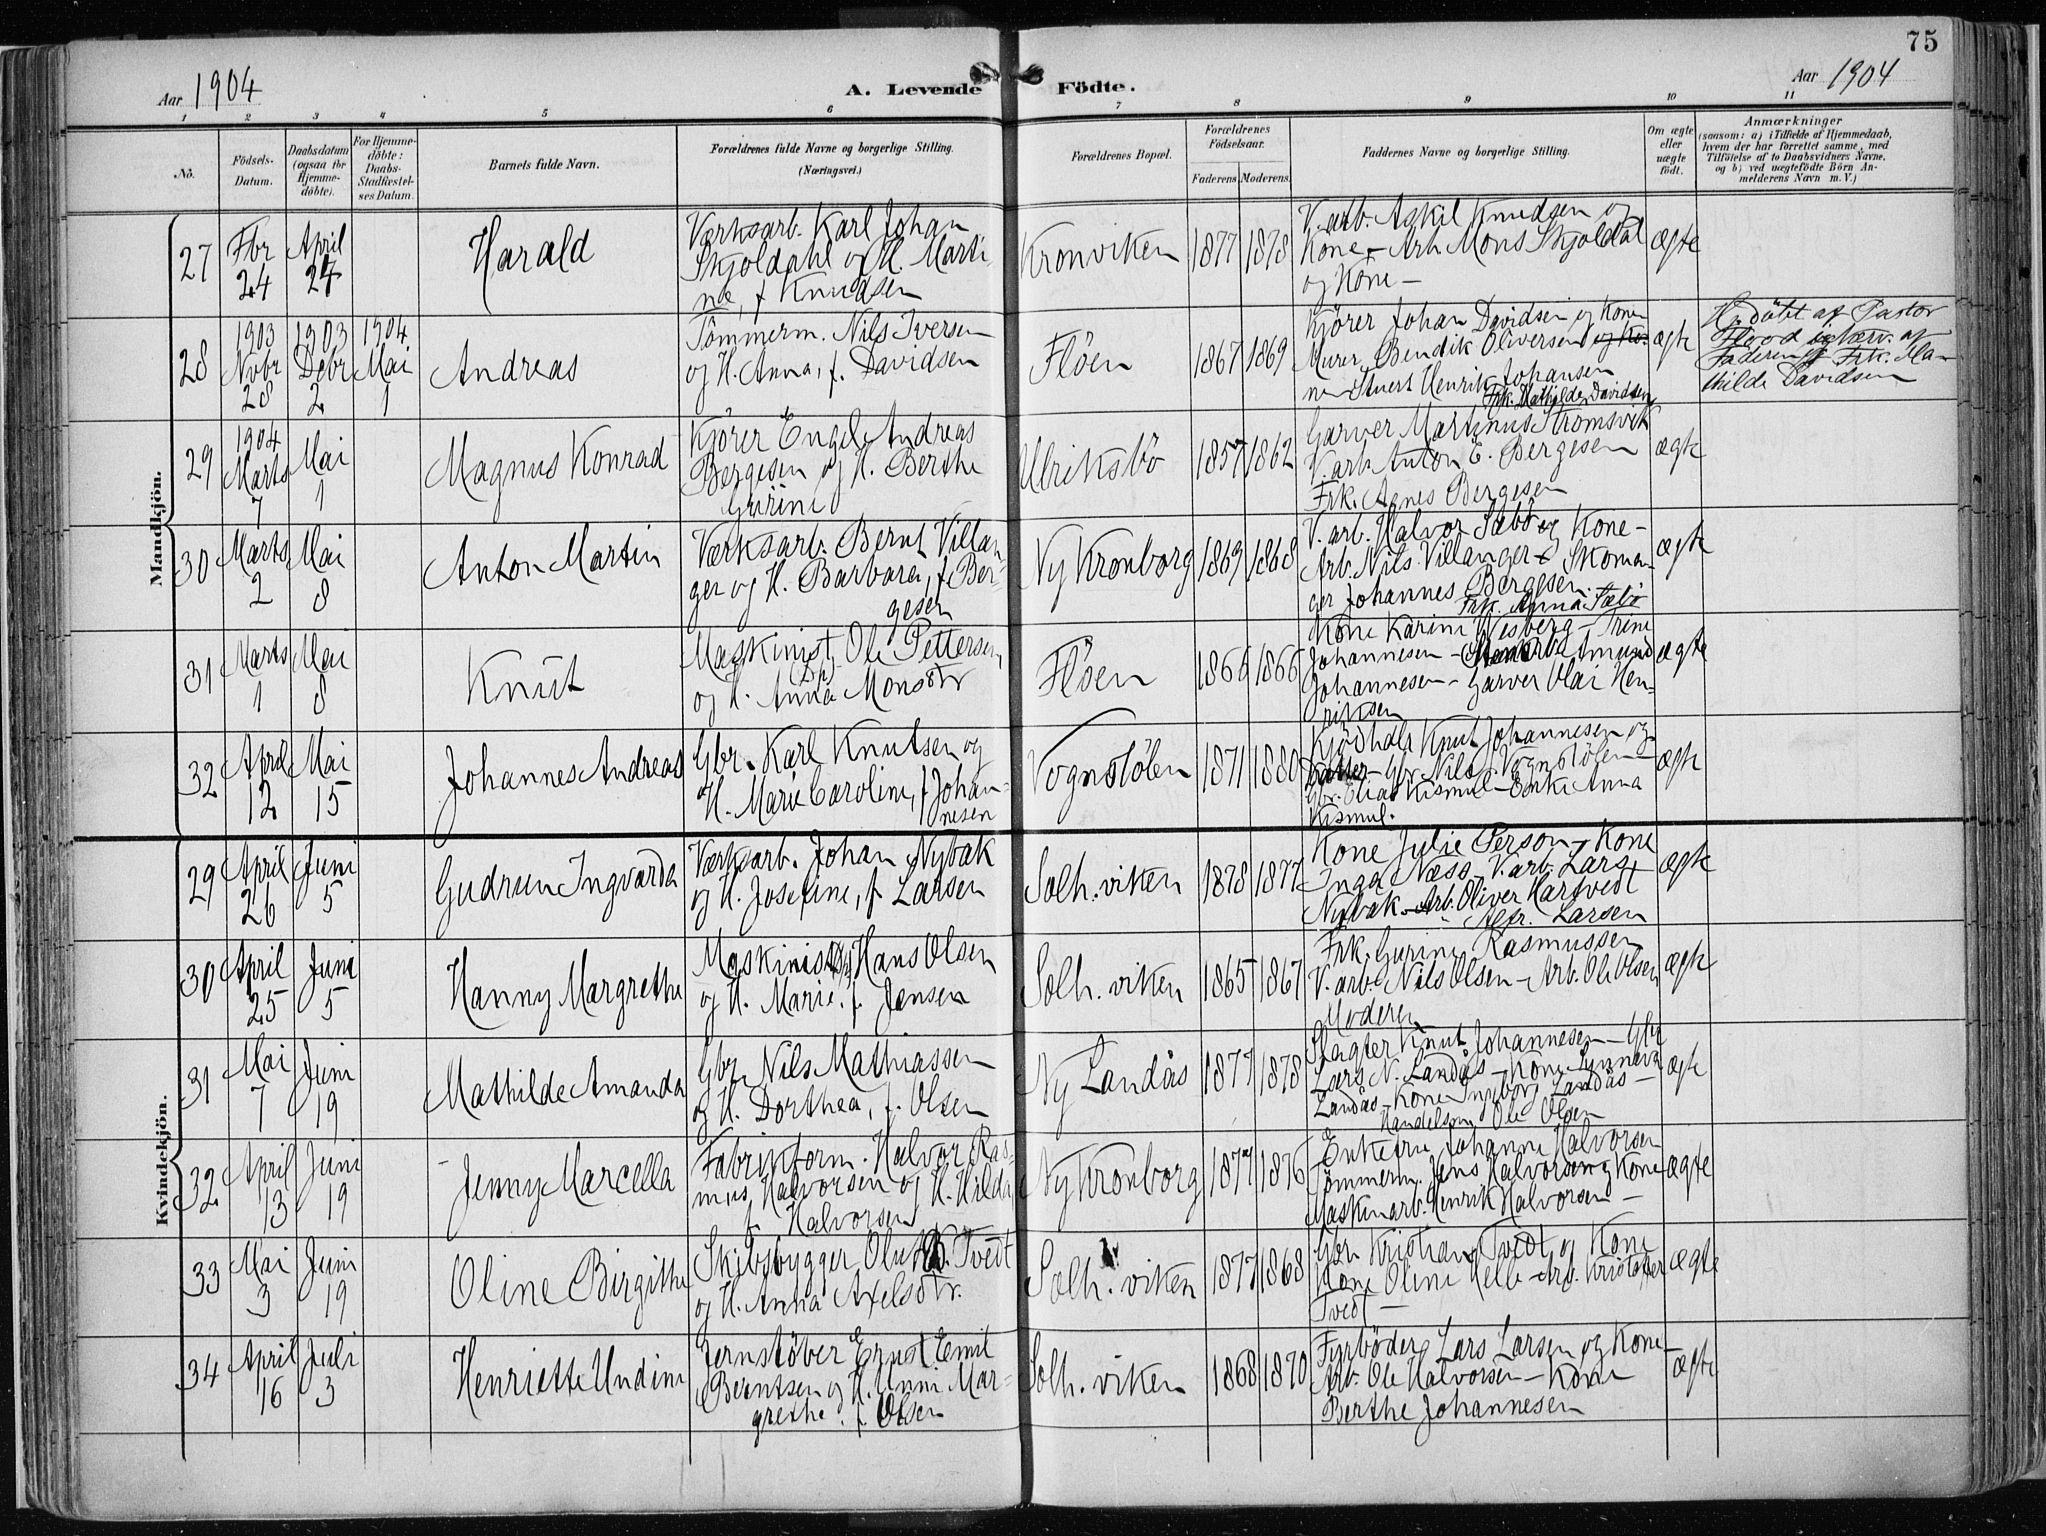 75
Aar 1904
A. Levende Födte.
Aar 1904
1 2 3 4 5 6 7 8 9 10 11
No.
Födsels-
Datum.
Daabsdatum
(ogsaa for
Hjemme-
döbte).
For Hjemme-
döbte:
Daabs-
Stadfæstel-
ses Datum.
Barnets fulde Navn.
Forældrenes fulde Navne og borgerlige Stilling.
(Næringsvei.)
Forældrenes Bopæl.
Forældrenes
Födselsaar.
Faderens Moderens
Faddernes Navne og borgerlige Stilling.
Om ægte
eller
uægte
födt.
Anmærkninger
(saasom: a) i Tilfælde af Hjemmedaab,
hvem der har forrettet samme, med
Tilföielse af to Daabsvidners Navne,
og b) ved uægtefödte Börn An-
melderens Navn m. V.)
Mandkjön.
27
Fbr
24
April
24
Harald
Værksarb. Karl Johan
Skjoldahl og H. Marti-
ne, f. Knudsen
Kronviken
1877
1878
V.arb. Askil Knudsen og
Kone - Arb. Mons Skjoldal
og Kone -
ægte
28
1903
Nvbr
28
1903
Debr
2
1904
Mai
1
Andreas
Tömmerm. Nils Iversen
og H. Anna, f. Davidsen
Flöen
1867
1869
Kjörer Johan Davidsen og Kone
Murer Bendik Oliversen og Ko-
ne Stuert Henrik Johansen
Frk. Mathilde Davidsen
ægte
Hj.döbt af Pastor
Flood i nærv. af
Faderen & Frk. Ma-
thilde Davidsen
29
1904
Marts
7
Mai
1
Magnus Konrad
Kjörer Engel Andreas
Bergesen og H. Berthe
Gurine
Ulriksbö
1857
1862
Garver Martinus Strömsvik
V.arb. Anton E. Bergesen
Frk. Agnes Bergesen
ægte
30
Marts
2
Mai
8
Anton Martin
Værksarb. Bernt Villan-
ger og H. Barbara, f. Ber-
gesen
Ny Kronborg
1869
1868
V.arb. Halvor Sæbö og Kone -
Arb. Nils Villanger - Skoma-
ger Johannes Bergesen
Frk. Anna Sæbö
ægte
31
Marts
1
Mai
8
Knut
Maskinist Ole Pettersen
og H. Anna Monsdtr
Flöen
1866
1866
Kone Karine Wisberg - Trine
Johannesen - Amund
Johannesen - Garver Olai Hen-
riksen
ægte
32
April
12
Mai
15
Johannes Andreas
Gbr. Karl Knutsen og
H. Marie Caroline, f. Johan-
nesen
Vognstölen
1871
1880
Kjödhdlr Knut Johannesen og
Datter - Gbr. Nils J. Vognstölen
Gbr. Elias Kismul - Enke Anna
Kismul.
ægte
Kvindekjön.
29
April
26
Juni
5
Gudrun Ingvarda
Værksarb. Johan Nybak
og H. Josefine, f. Larsen
Solh.viken
1878
1877
Kone Julie Person - Kone
Inga Næss - V.arb. Lars
Nybak - Arb. Oliver Hartvedt
Alfr. Larsen
ægte
30
April
25
Juni
5
Hanny Margrethe
Maskinist Hans Olsen
og H. Marie, f. Jensen
Solh.viken
1865
1867
Frk. Gurine Rasmussen
V.arb. Nils Olsen - Arb. Ole Olsen
Moderen
ægte
31
Mai
7
Juni
19
Mathilde Amanda
Gbr. Nils Mathiassen
og H. Dorthea, f. Olsen
Ny Landås
1877
1878
Slagter Knut Johannesen - Gbr
Lars N. Landås - Kone Synneva
Landås - Kone Ingeborg Landås -
Handelsm. Ole Olsen
ægte
32
April
13
Juni
19
Jenny Marcella
Fabrikform. Halvor Ras-
mus Halvorsen og H. Hilda
f. Halvorsen
Ny Kronborg
1877
1876
Enkefru Johanne Halvorsen
Tömmerm. Jens Halvorsen og Kone
Maskinarb. Henrik Halvorsen -
ægte
33
Mai
3
Juni
19
Oline Birgithe
Skibsbygger Oluf B. Tvedt
og H. Anna Axelsdtr.
Solh.viken
1877
1868
Gbr. Kristian Tvedt og Kone
Kone Oline Helle - Arb. Kristoffer
Tvedt -
ægte
34
April
16
Juli
3
Henriette Undine
Jernstöber Ernst Emil
Berntsen og H. Unni Mar-
grethe. f. Olsen
Solh.viken
1868
1870
Fyrböder Lars Larsen og Kone -
Arb. Ole Halvorsen - Kone
Berthe Johannesen
ægte